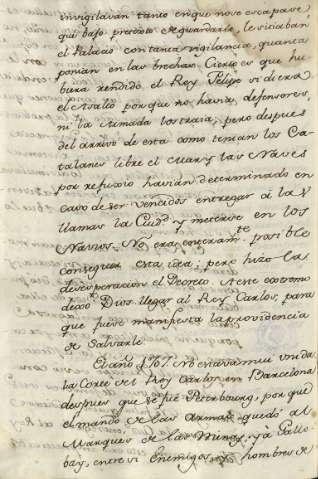 invigilavan tanto en que no se escapase,
que bajo pretexto de guardarle, le sitiaban
el Palacio con tanta vigilancia, quanta
ponian en las brechas. Cierto es que hu-
biera rendido el Rey Felipe si diera
el Avalto porque no havia defensores,
ni la Armada los traia; pero despues
del arrivo de esta como tenian los Ca-
talanes libre el Mar, y las Naves
por refuxio havian determinado en
caso de ser vencidos entregar a las
llamas la Ciud.d y meterse en los
Navios. No era enteram.te posible
conseguir esta idea; pero hizo la
desesperacion el Decreto. A este extremo
dexó Dios llegar al Rey Carlos, para
que fuese manifiesta la providencia
de Salvarle.
El año 1707. No estava mui unida
la Corte del Rey Carlos en Barcelona
despues que se fue Peterbourg, por que
el mando de las Armas quedó al
Marques de las Minas, y a Gallo-
bay, entre si Enemigos, hombres de